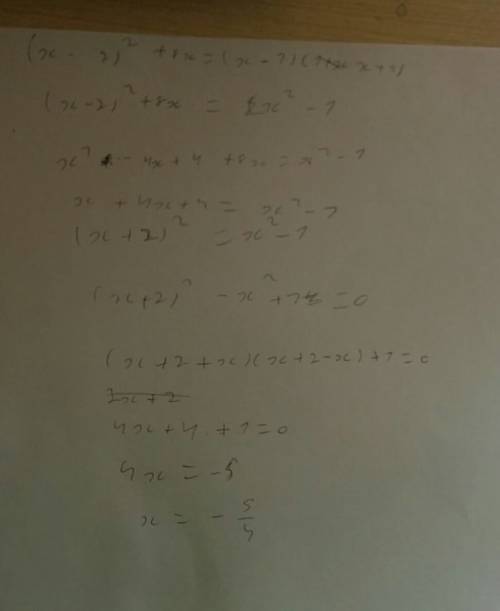 (x - 2)² + 8x = (x - 1)(1+x x+1)
(x-2)² + 8x = x² - 1
x² - 4x + 4 + 8x = x² - 1
x + 4x + 4 = x² - 1
(x + 2)² = x² - 1
(x+2)² - x² + 1 = 0
(x + 2 + x)(x + 2 - x) + 1 = 0
2x + 2
4x + 4 + 1 = 0
4x = -5
x = - 5/4